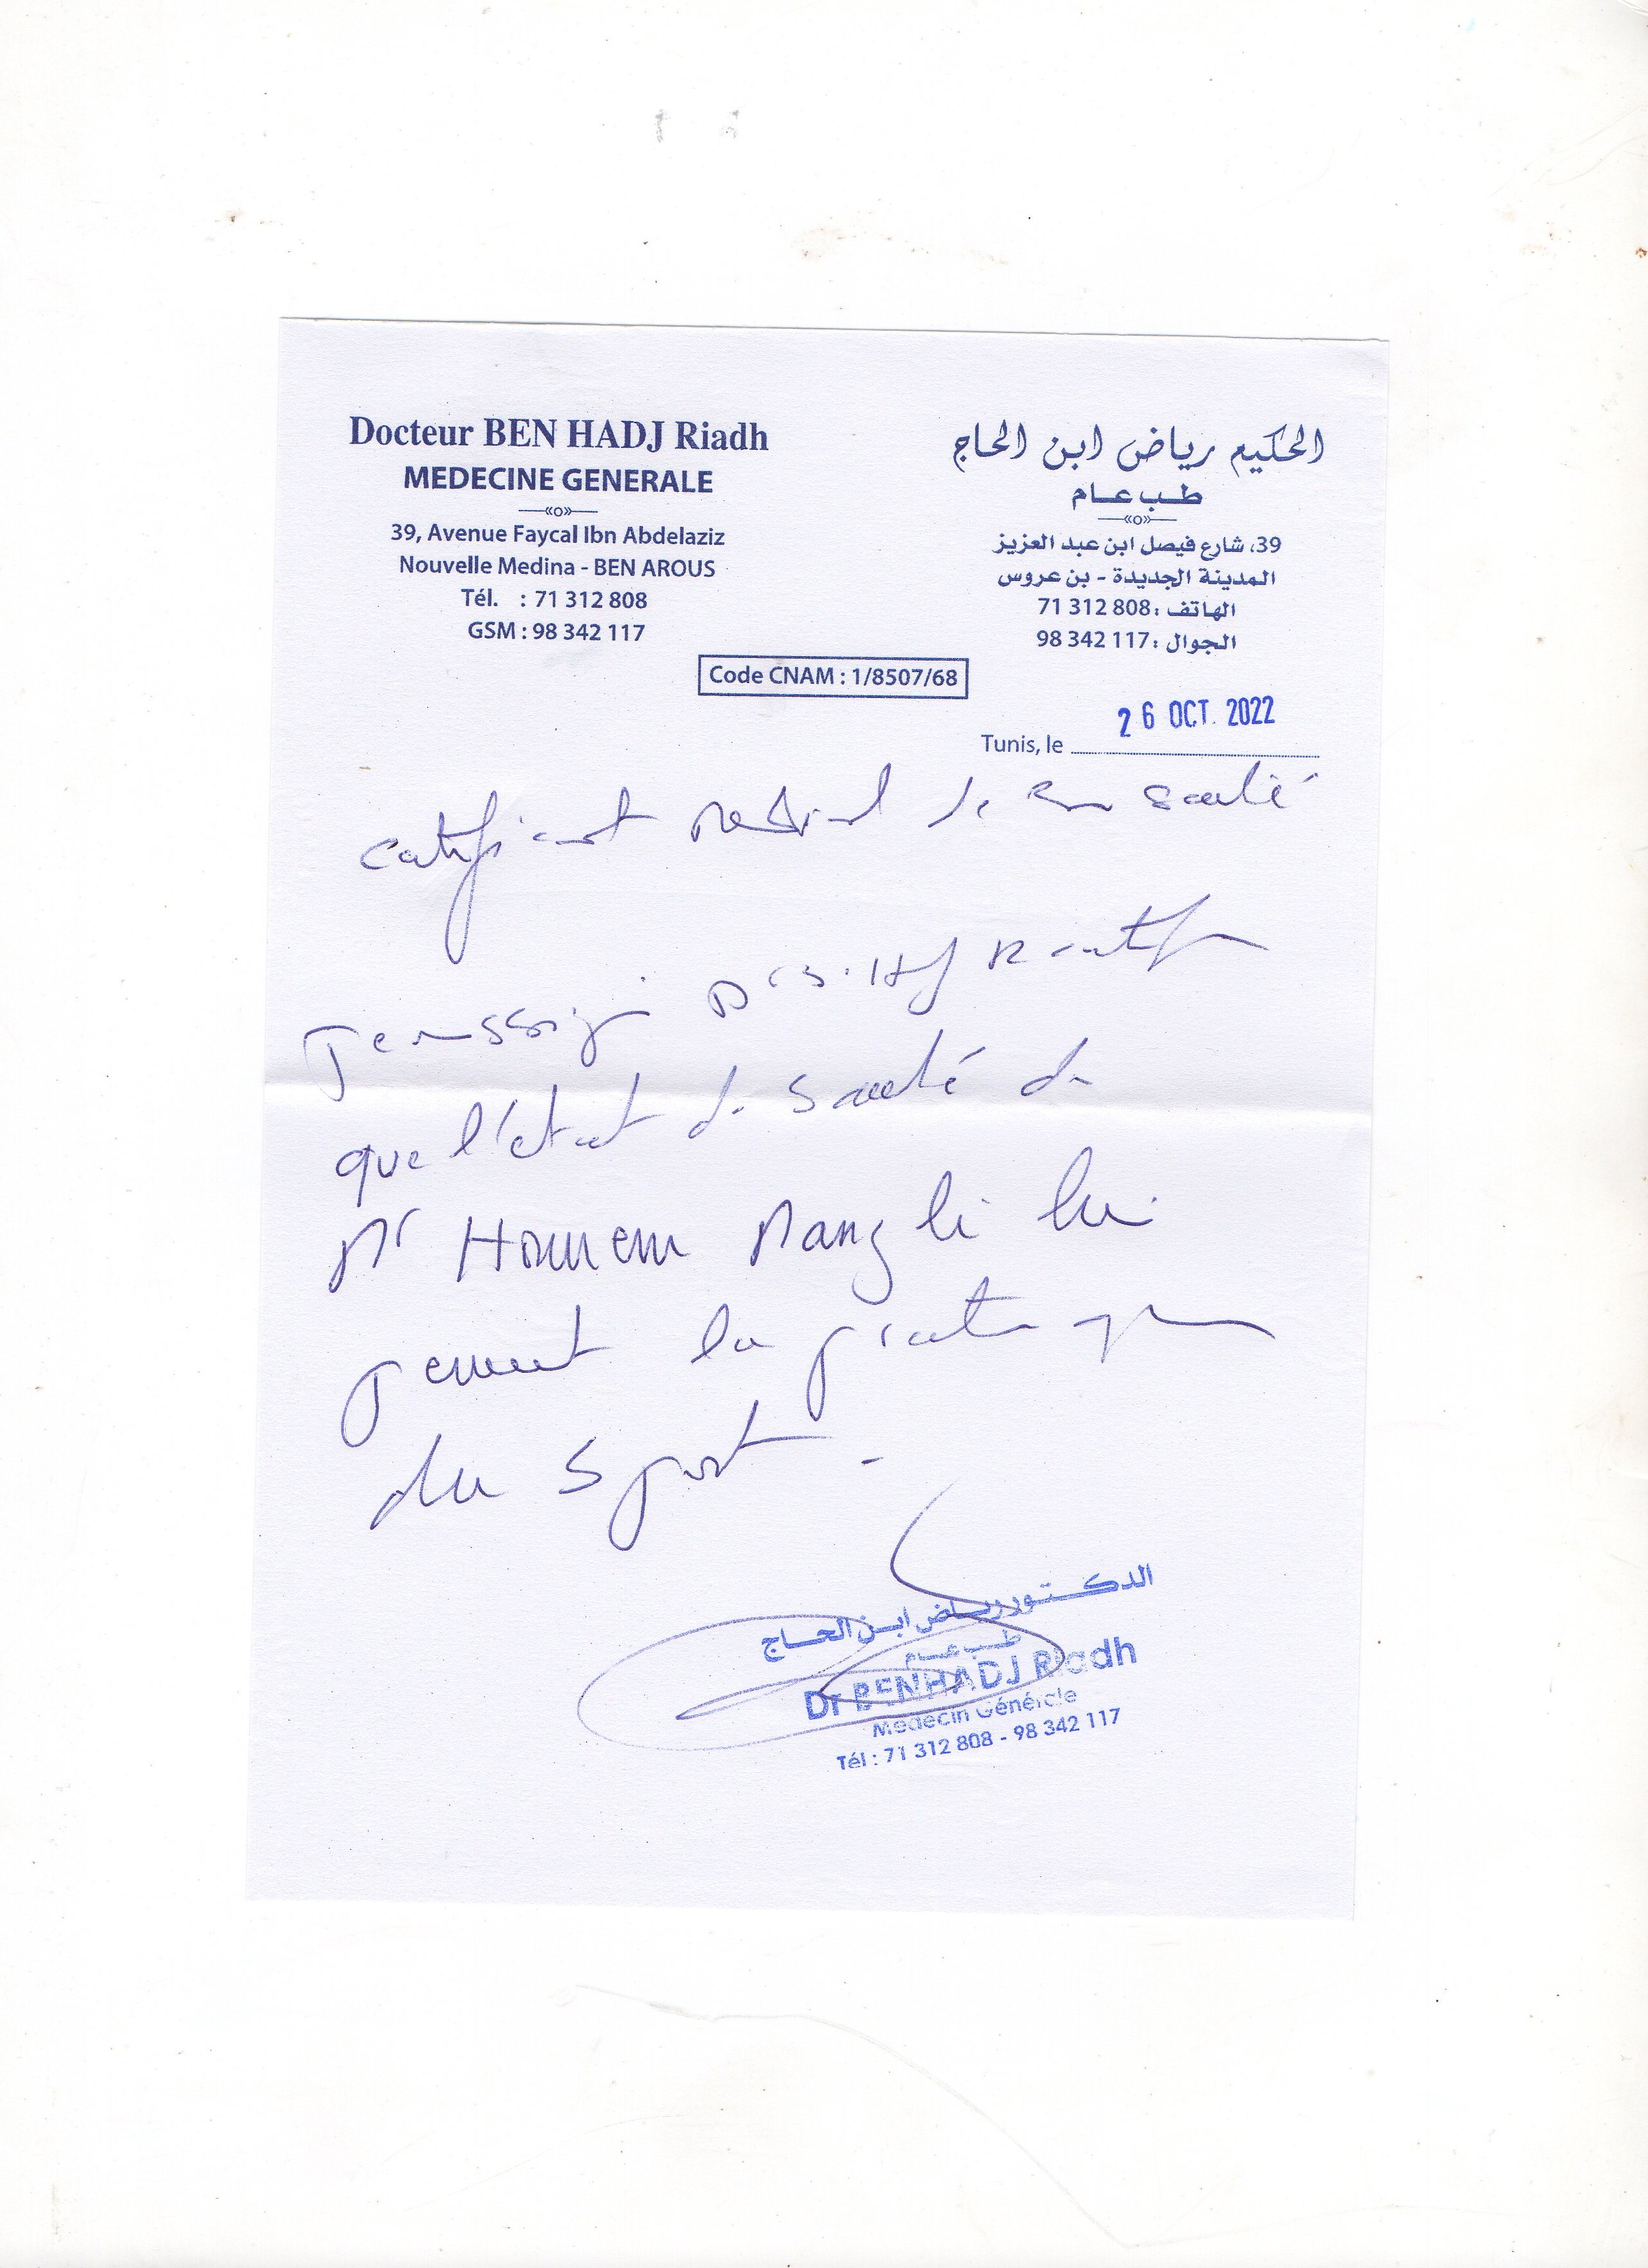 Docteur BEN HADJ Riadh
MEDECINE GENERALE
39, Avenue Faycal Ibn Abdelaziz
Nouvelle Medina - BEN AROUS
Tél. : 71 312 808
GSM : 98 342 117
الحكيم رياض ابن الحاج
طب عام
39، شارع فيصل ابن عبد العزيز
المدينة الجديدة - بن عروس
الهاتف : 71 312 808
الجوال : 98 342 117
Code CNAM : 1/8507/68
Tunis, le 26 OCT. 2022
certificat medical de bon santé
que l'état de santé de
Mr Houmem Mangli lui
permet la pratique
du sport.
الدكتور رياض ابن الحاج
طب عام
Dr BEN HADJ Riadh
Médecin Générale
Tél : 71 312 808 - 98 342 117